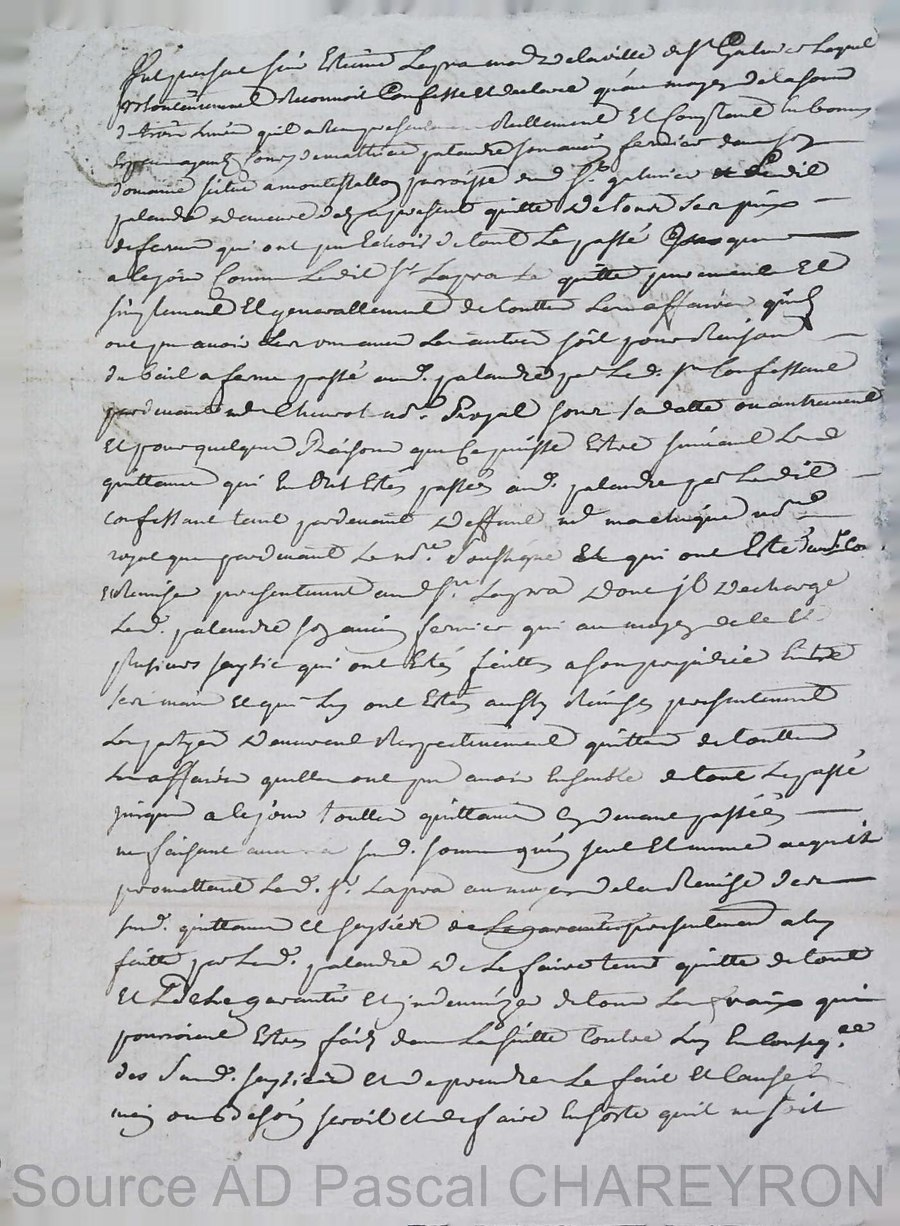 fut present sieur Estienne Lapra md de la ville de St Galmier Lequel
volontairement Reconnoit Confesse et declare qu'au moyen de la somme
de qu'il a Reellement Et Comptant En bonnes
Especes de mathieu palandre son ancien fermier dans son
domaine situé a montestallon parroisse dud. St galmier Ledit
palandre demeure d'aprésent quitte De tous Ses prix
de ferme qui ont pu Echoir de tout Le passé jusques
a ce jour Comme Ledit Sr Lapra Le quitte purement Et
simplement Et generallement de touttes Les affaires qu'ils
ont pu avoir Les uns avec Les autres soit pour Raison
du bail a ferme passé aud. palandre par Led. Sr Confessant
pardevant me not. Royal sous sa datte ou autrement
Et pour quelque Raison que Ce puisse Estre suivant Les
quittances qui En ont Estés passées aud. palandre par Ledit
Confessant tant pardevant Deffunt me not.
royal que pardevant Le no.re soussigné Et qui ont Esté
Remises presentement aud Sr Lapra Dont il Decharge
Led. palandre son ancien fermier qui au moyen de
plusieurs saysies qui ont Estés faittes a son prejudice Entre
Ses mains Et qui Luy ont Estés aussy Remises presentement
Les partyes Demeurent Respectivement quittes de touttes
Les affaires qu'elles ont pu avoir Ensemble de tout Le passé
jusques a ce jour touttes quittances cy devant passées
ne faisant avec la sud. somme qu'un seul Et meme acquit
promettant Led. Sr Lapra au moyen de la Remise des
sud. quittances et saysies de Le garantir presentement a luy
faitte par Led. palandre De Le faire tenir quitte de tout
Et De Le garantir Et indemniser de tous Les fraix qui
pourroient Estre faits dans La suitte Contre Luy En Conseq.ce
des Susd. saysies Et de prendre Le fait Et Cause En
main ou besoin seroit et de faire En sorte qu'il ne soit
Source AD Pascal CHAREYRON